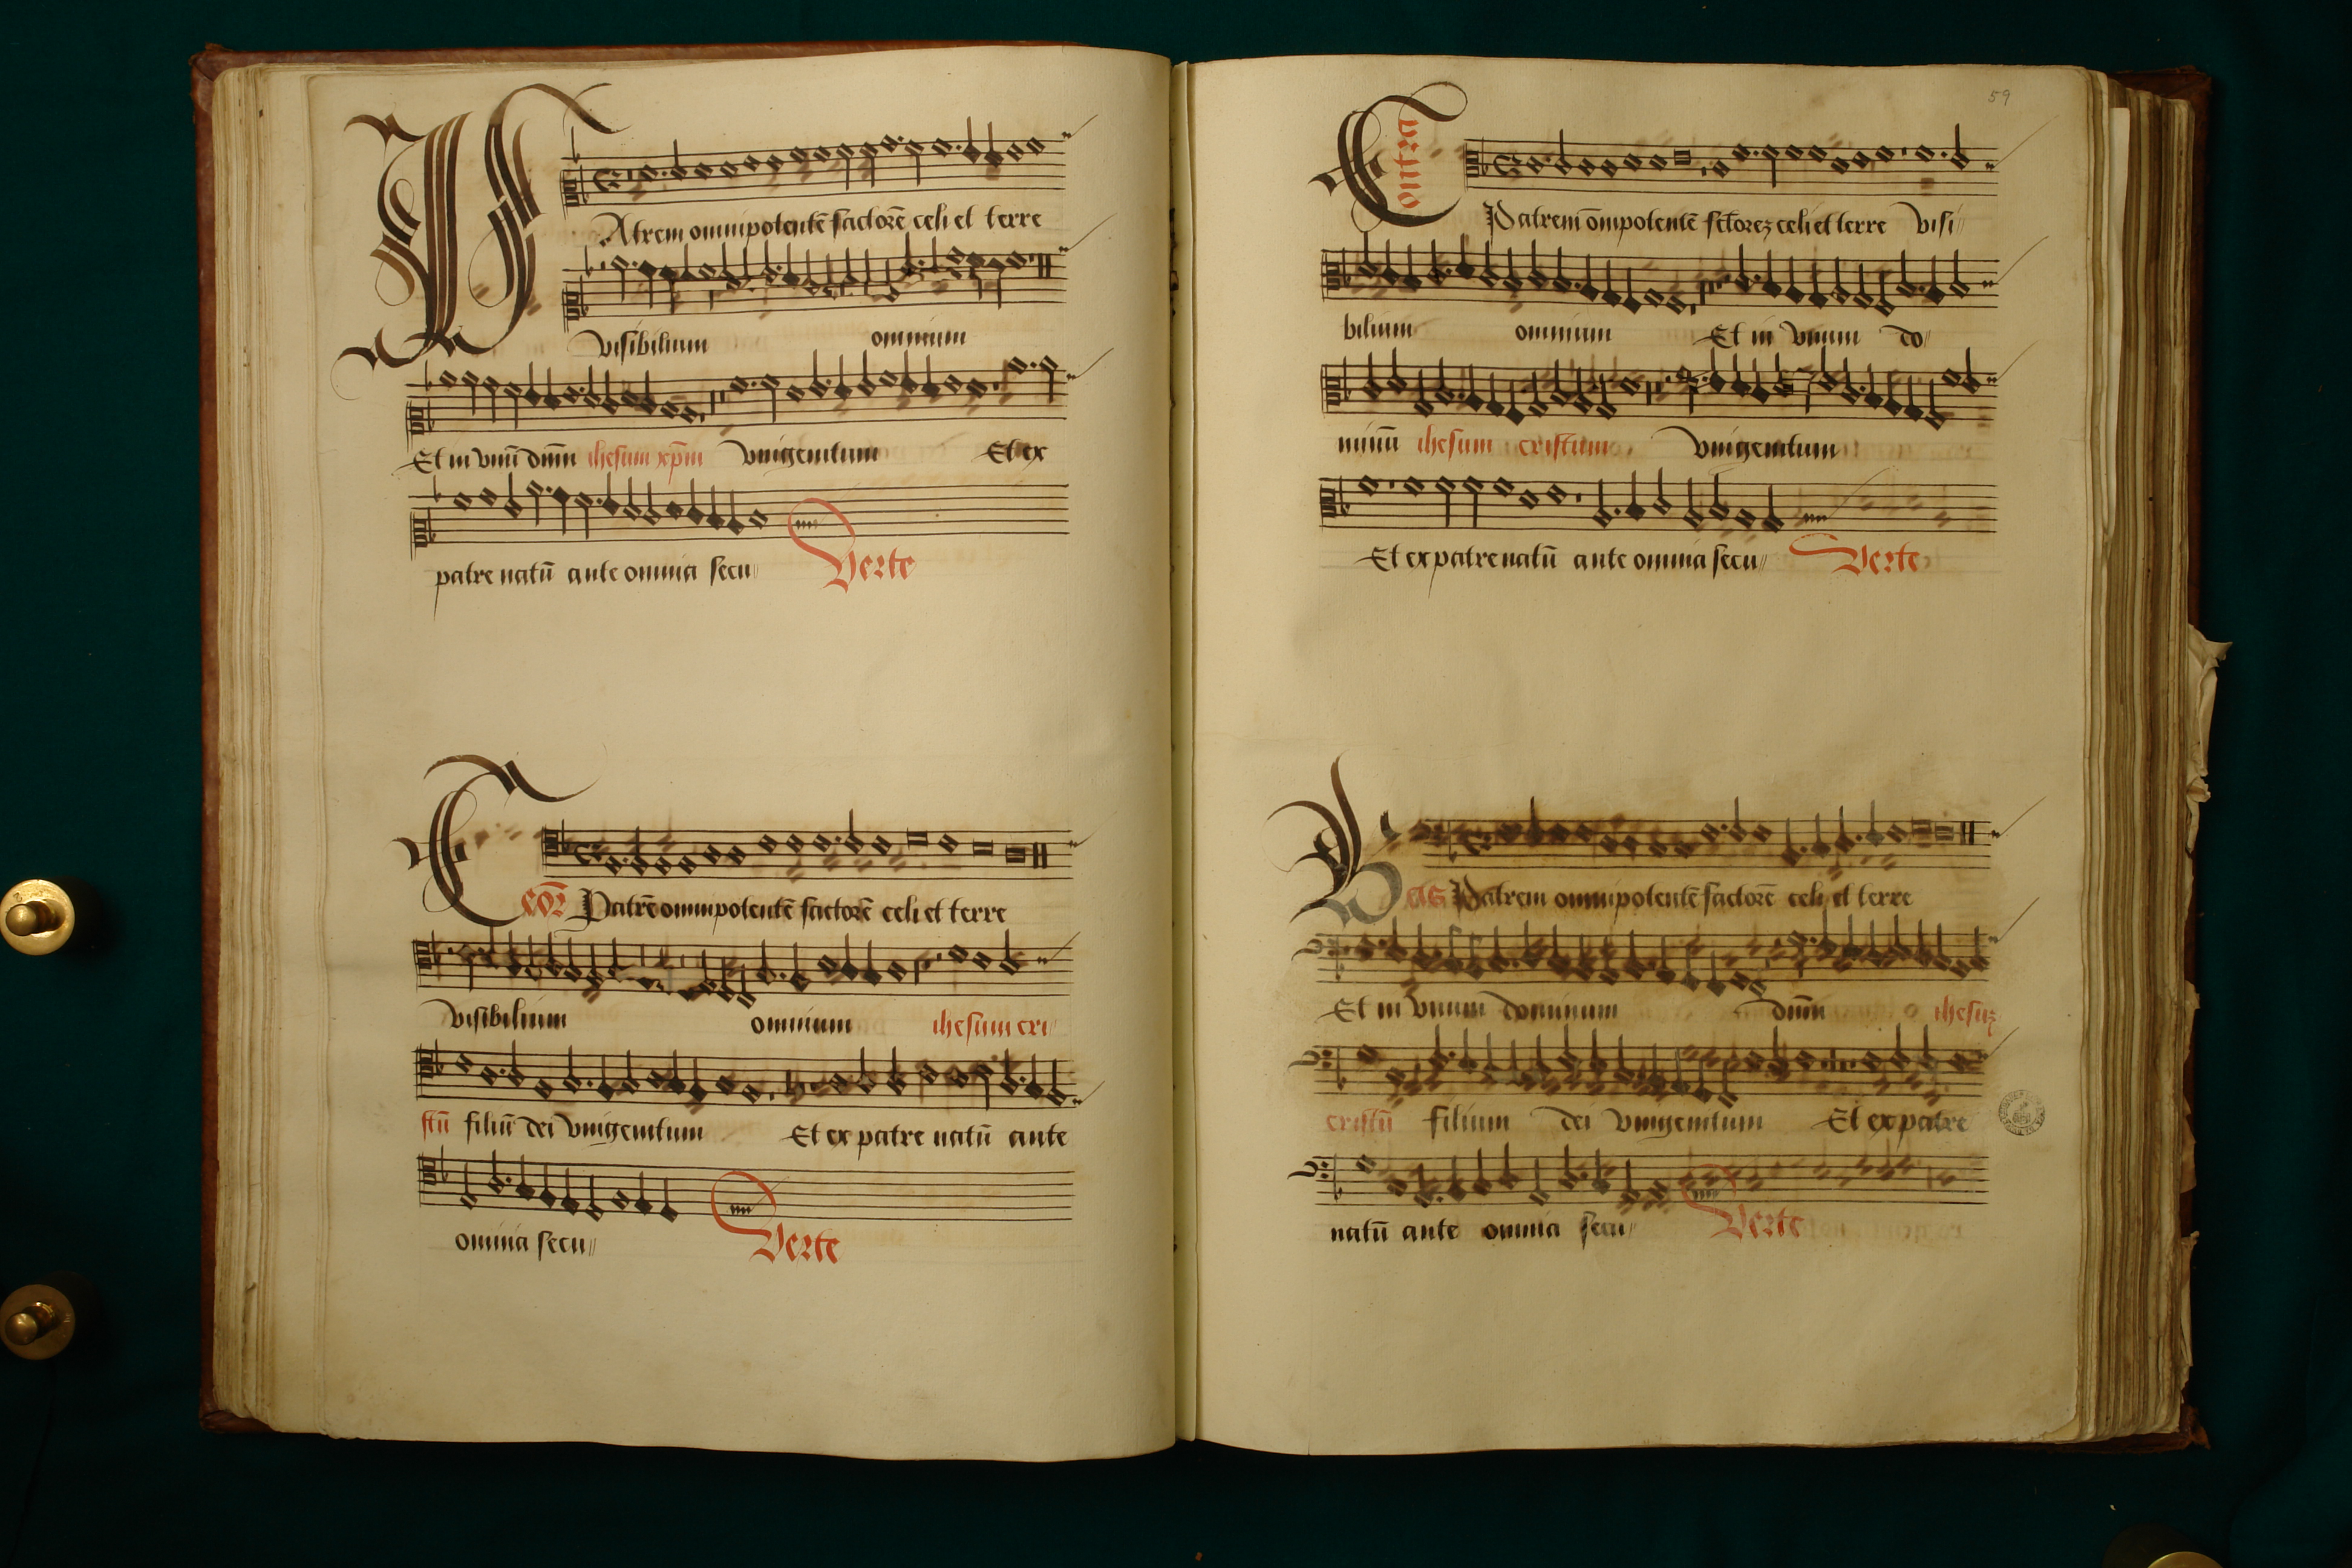 PAtrem omnipotentē factorē celi et terre
visibilium omnium
Et in vnū dnm̄ ihesum xp̄m vnigenitum Et ex
patre natū ante omnia secu
Verte
Patrē omnipotentē factorē celi et terre
visibilium omnium ihesum cri
stū filiū dei vnigenitum Et ex patre natū ante
omnia secu
Verte
59
Contra
Patrem om̄potentē fctorez celi et terre visi
bilium omnium Et in vnum do
minū ihesum cristum vnigenitum
Et ex patre natū ante omnia secu
Verte
Bas Patrem omnipotentē factorē celi et terre
Et in vnum dominum dnm̄ ihesuz
cristū filium dei vnigenitum Et ex patre
natū ante omnia secu
Verte